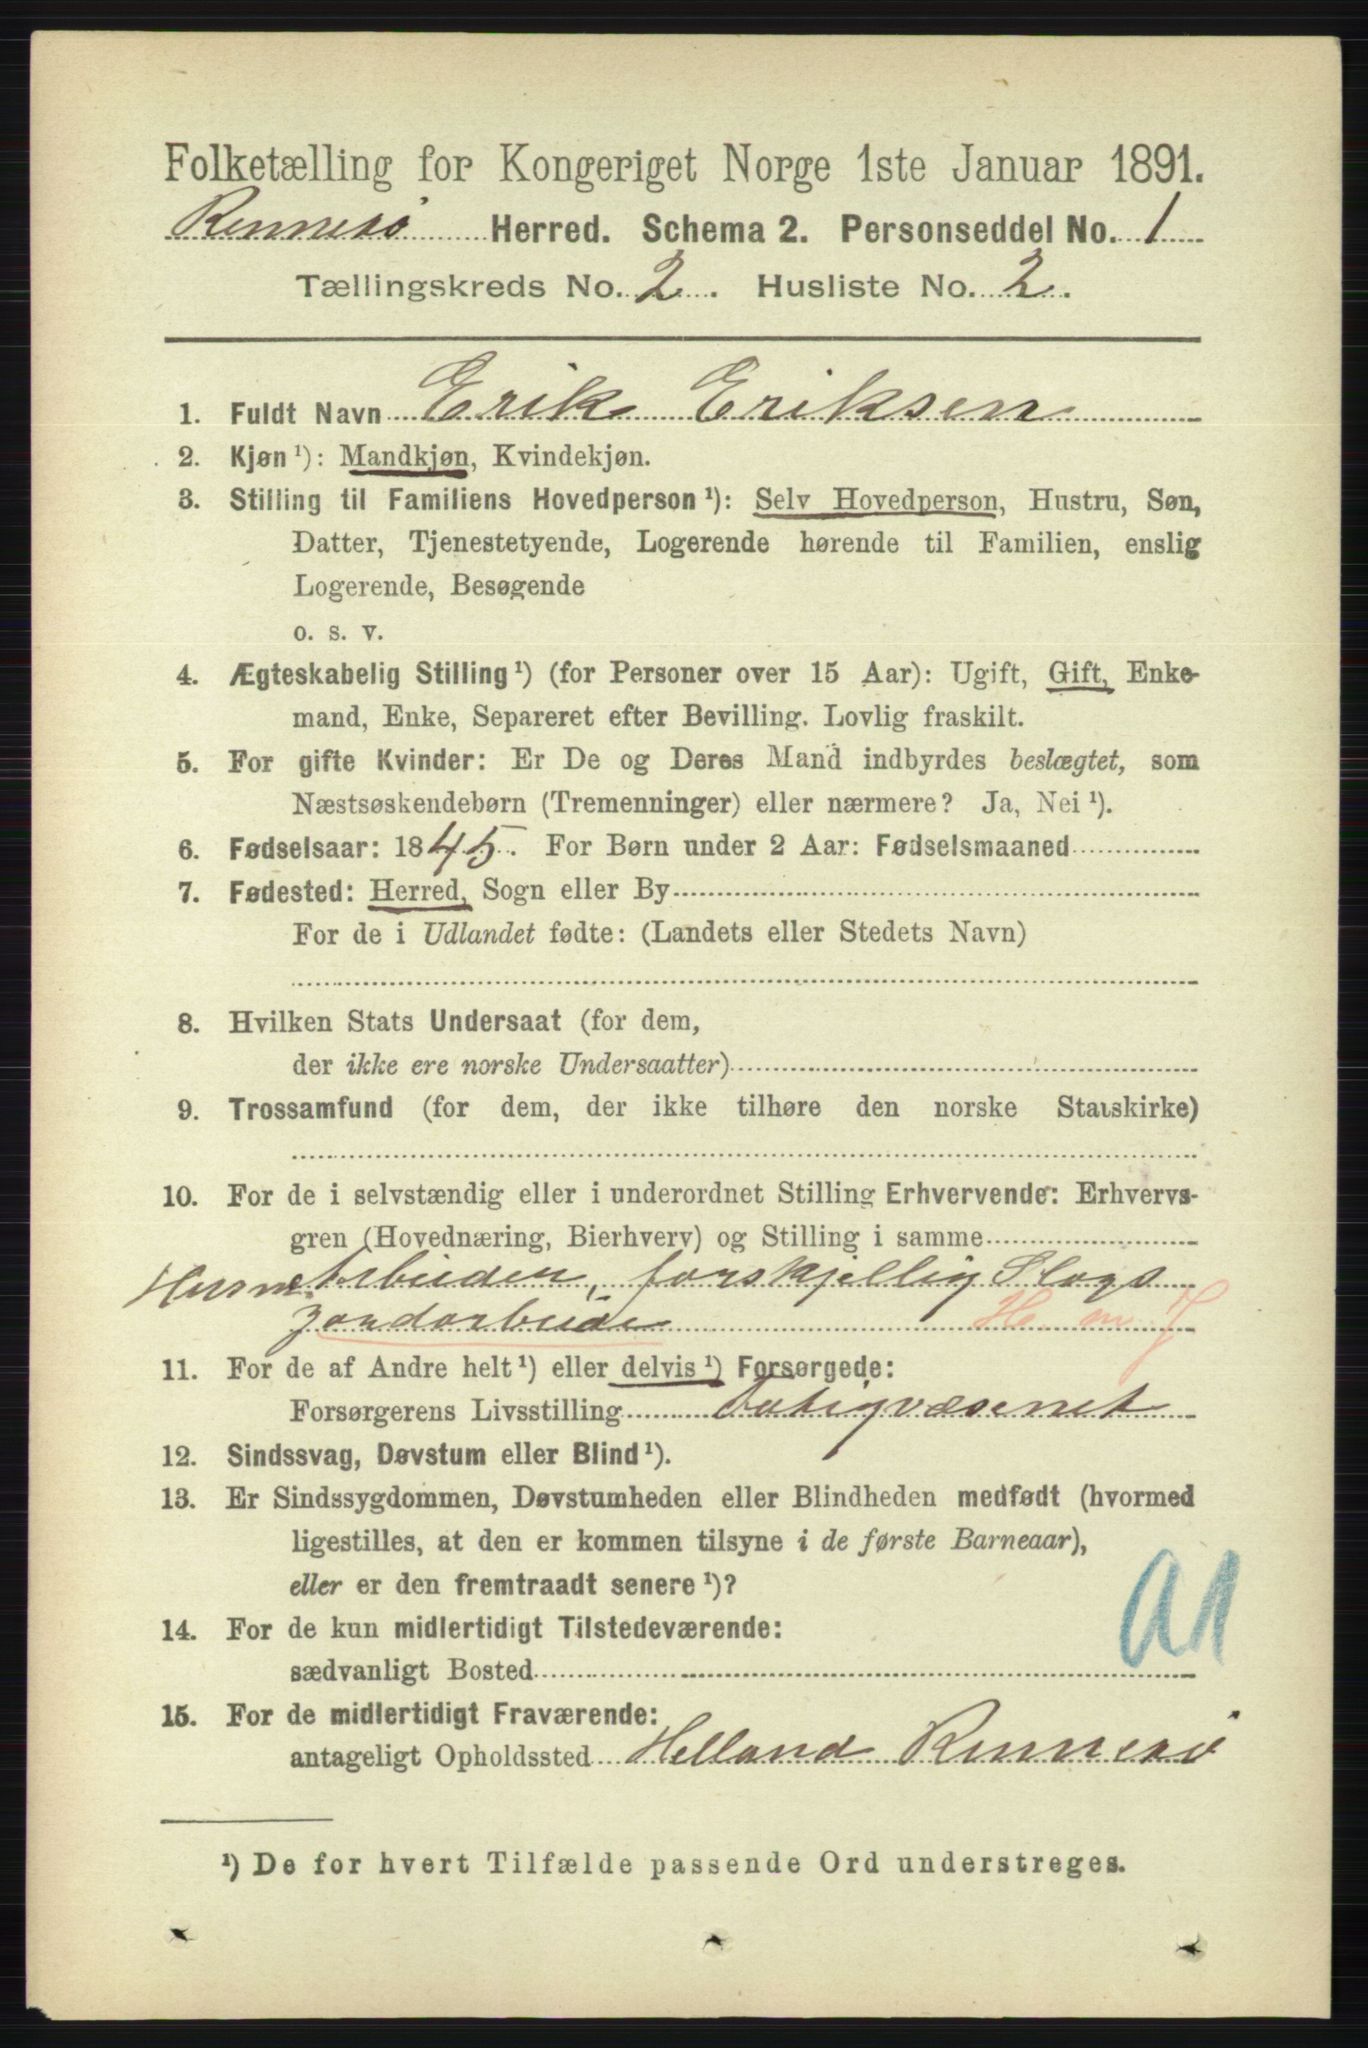 Folketælling for Kongeriget Norge 1ste Januar 1891.
Rennesö Herred. Schema 2. Personseddel No. 1
Tællingskreds No. 2. Husliste No. 2.
1. Fuldt Navn Erik Eriksen
2. Kjøn ¹): Mandkjøn, Kvindekjøn.
3. Stilling til Familiens Hovedperson ¹): Selv Hovedperson, Hustru, Søn,
Datter, Tjenestetyende, Logerende hørende til Familien, enslig
Logerende, Besøgende
o. s. v.
4. Ægteskabelig Stilling ¹) (for Personer over 15 Aar): Ugift, Gift, Enke-
mand, Enke, Separeret efter Bevilling. Lovlig fraskilt.
5. For gifte Kvinder: Er De og Deres Mand indbyrdes beslægtet, som
Næstsøskendebørn (Tremenninger) eller nærmere? Ja, Nei ¹).
6. Fødselsaar: 1845. For Børn under 2 Aar: Fødselsmaaned
7. Fødested: Herred, Sogn eller By
For de i Udlandet fødte: (Landets eller Stedets Navn)
8. Hvilken Stats Undersaat (for dem,
der ikke ere norske Undersaatter)
9. Trossamfund (for dem, der ikke tilhøre den norske Statskirke)
10. For de i selvstændig eller i underordnet Stilling Erhvervende: Erhvervs-
gren (Hovednæring, Bierhverv) og Stilling i samme
Husm. Arbeider, forskjellig Slags
Jordarbeide H. m. J
11. For de af Andre helt ¹) eller delvis ¹) Forsørgede:
Forsørgerens Livsstilling Fatigvæsenet
12. Sindssvag, Døvstum eller Blind ¹).
13. Er Sindssygdommen, Døvstumheden eller Blindheden medfødt (hvormed
ligestilles, at den er kommen tilsyne i de første Barneaar),
eller er den fremtraadt senere ¹)?
14. For de kun midlertidigt Tilstedeværende:
sædvanligt Bosted
a1
15. For de midlertidigt Fraværende:
antageligt Opholdssted Helland Rennesö
¹) De for hvert Tilfælde passende Ord understreges.